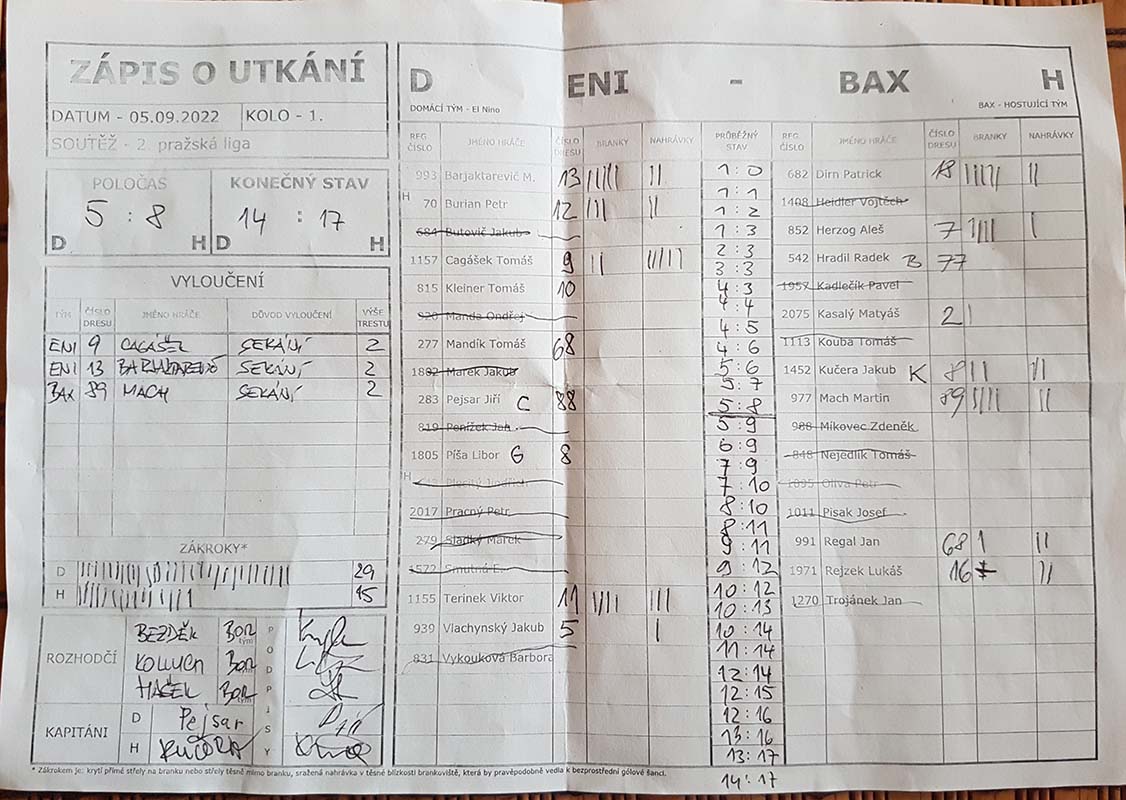 ZÁPIS O UTKÁNÍ
DATUM - 05.09.2022 KOLO - 1.
SOUTĚŽ - 2. pražská liga
POLOČAS KONEČNÝ STAV
5 : 8 14 : 17
D H D H
VYLOUČENÍ
TÝM ČÍSLO DRESU JMÉNO HRÁČE DŮVOD VYLOUČENÍ VÝŠE TRESTU
ENI 9 CAGÁŠEK SEKÁNÍ 2
ENI 13 SEKÁNÍ 2
BAX 89 MACH SEKÁNÍ 2
ZÁKROKY*
D 29
H 15
ROZHODČÍ
BEZDĚK BOR
BOR
HAŠEK BOR
tým
PODPISY
KAPITÁNI
D Pejsar
H KUČERA
D ENI - BAX H
DOMÁCÍ TÝM - El Nino BAX - HOSTUJÍCÍ TÝM
REG. ČÍSLO JMÉNO HRÁČE ČÍSLO DRESU BRANKY NAHRÁVKY
993 Barjaktarevič M. 13
H 70 Burian Petr 12
684 Butovič Jakub
1157 Cagášek Tomáš 9
815 Kleiner Tomáš 10
920 Manda Ondřej
277 Mandík Tomáš 68
1802 Marek Jakub
283 Pejsar Jiří C 88
819 Penížek Jan
1805 Píša Libor G 8
H Plocitý Jindřich
2017 Pracný Petr
279 Sladký Marek
1572 Smutná E.
1155 Terinek Viktor 11
939 Vlachynský Jakub 5
831 Vykouková Barbora
PRŮBĚŽNÝ STAV
1 : 0
1 : 1
1 : 2
1 : 3
2 : 3
3 : 3
4 : 3
4 : 4
4 : 5
4 : 6
5 : 6
5 : 7
5 : 8
5 : 9
6 : 9
7 : 9
7 : 10
8 : 10
8 : 11
9 : 11
9 : 12
10 : 12
10 : 13
10 : 14
11 : 14
12 : 14
12 : 15
12 : 16
13 : 16
13 : 17
14 : 17
REG. ČÍSLO JMÉNO HRÁČE ČÍSLO DRESU BRANKY NAHRÁVKY
682 Dirn Patrick 18
1408 Heidler Vojtěch
852 Herzog Aleš 7
542 Hradil Radek B 77
1957 Kadlečík Pavel
2075 Kasalý Matyáš 2
1113 Kouba Tomáš
1452 Kučera Jakub K 8
977 Mach Martin 89
988 Mikovec Zdeněk
848 Nejedlík Tomáš
1095 Oliva Petr
1011 Pisak Josef
991 Regal Jan 68
1971 Rejzek Lukáš 16
1270 Trojánek Jan
* Zákrokem je: krytí přímé střely na branku nebo střely těsně mimo branku, sražená nahrávka v těsné blízkosti brankoviště, která by pravěpodobně vedla k bezprostřední gólové šanci.